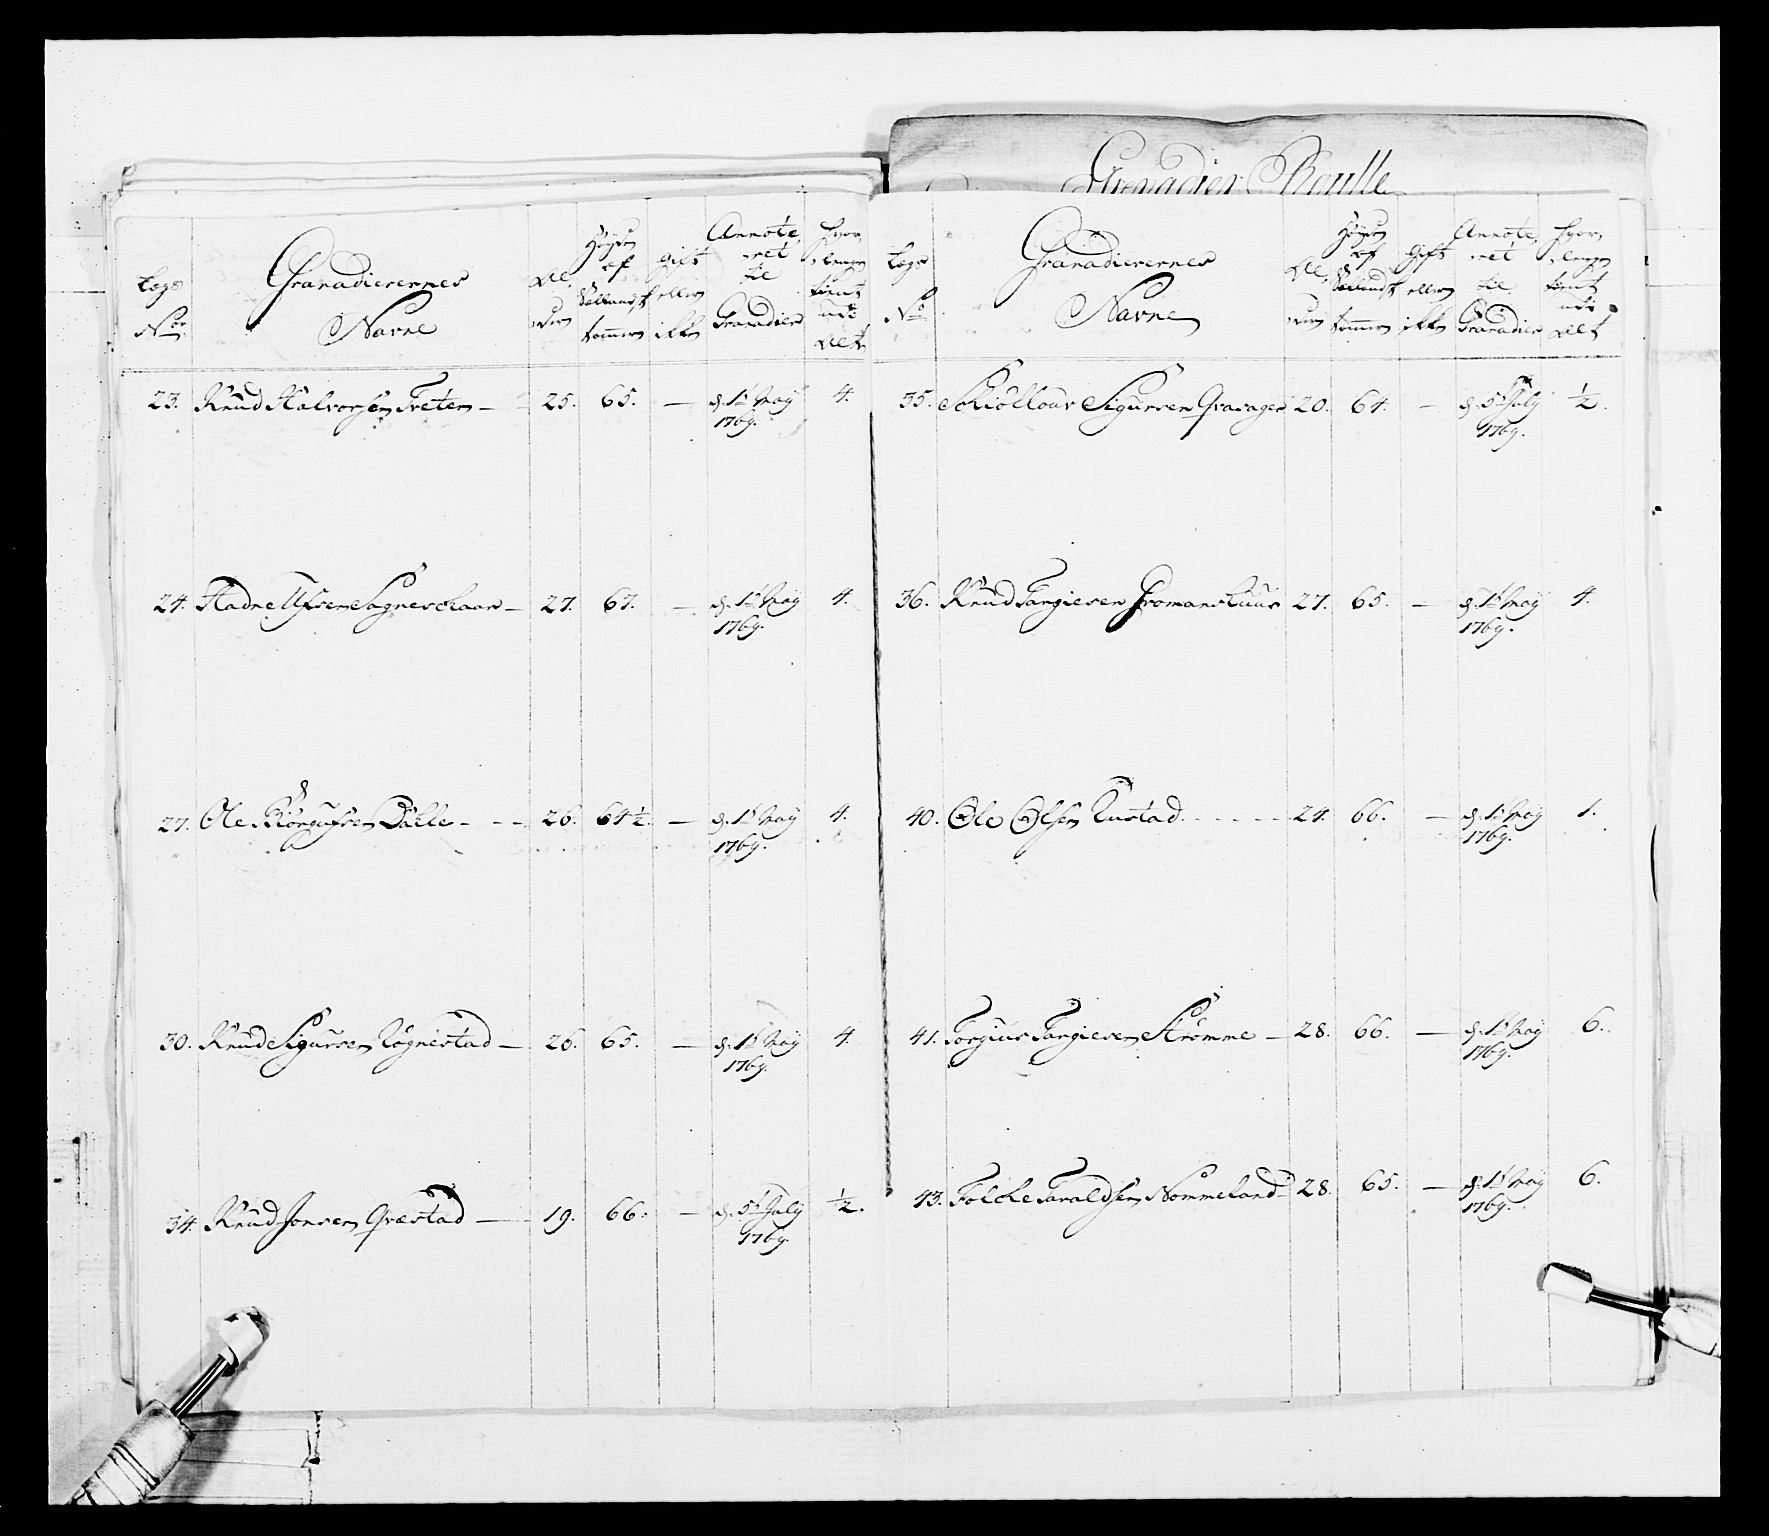 Grenadier Roulle
Lægs
No.
Granadierernes
Navne
Al,
dern
Høyde
ef
Sællandsk
tommer
gift
ellern
ikke
Annote,
ret
til
Granadier
hvor,
længe
tient
udi
alt
23. Knud Halvorsen Treten — 25. 65. — d. 1t May 1769. 4.
24. Aadne Ufsen Sagneschaar — 27. 67. — d. 1t May 1769. 4.
27. Ole Biörgufsen Dålle - - - 26. 64½. — d. 1t May 1769. 4.
30. Knud Sigursen Rögnestad — 26. 65. — d. 1t May 1769. 4.
34. Knud Jonsen Qvæstad — 19. 66. — d. 5t July 1769. ½.
Lægs
No
Granadierernes
Navne
Al,
dern
Høyde
ef
Sællandsk
tommer
gift
ellern
ikke
Annote,
ret
til
Granadier
hvor,
længe
tient
udi
alt
35. Schiöllour Sigursen Qvavager 20. 64. — d. 5t July 1769. ½.
36. Knud Targiesen Fromanshuus 27. 65. — d. 1t May 1769. 4.
40. Ole Olsen Rustad - - - - 24. 66. — d. 1t May 1769. 1.
41. Torgius Targiesen Strömme — 28. 66. — d. 1t May 1769. 6.
43. Folche Taraldsen Nommeland - 28. 65. — d. 1t May 1769. 6.